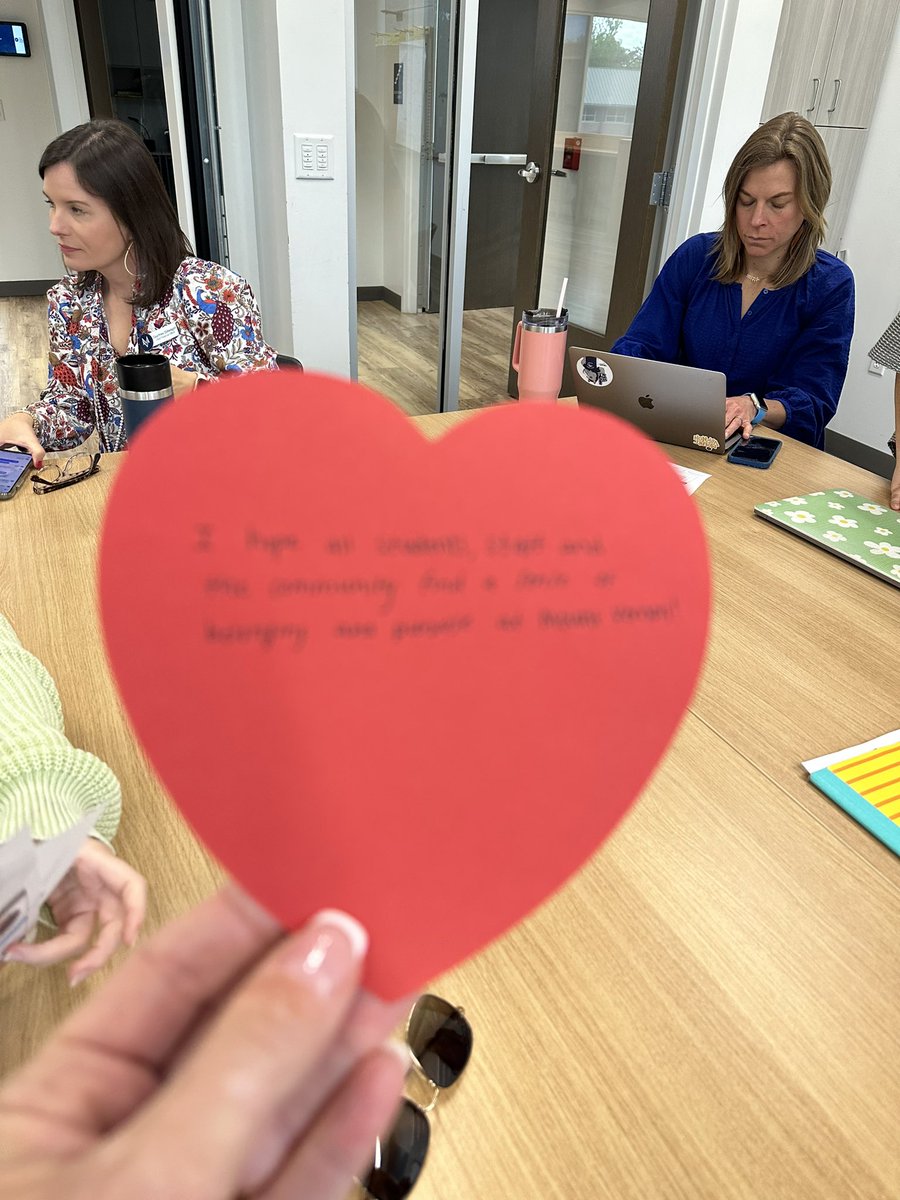 I hope all students, staff and
the community find a sense of
belonging and purpose at